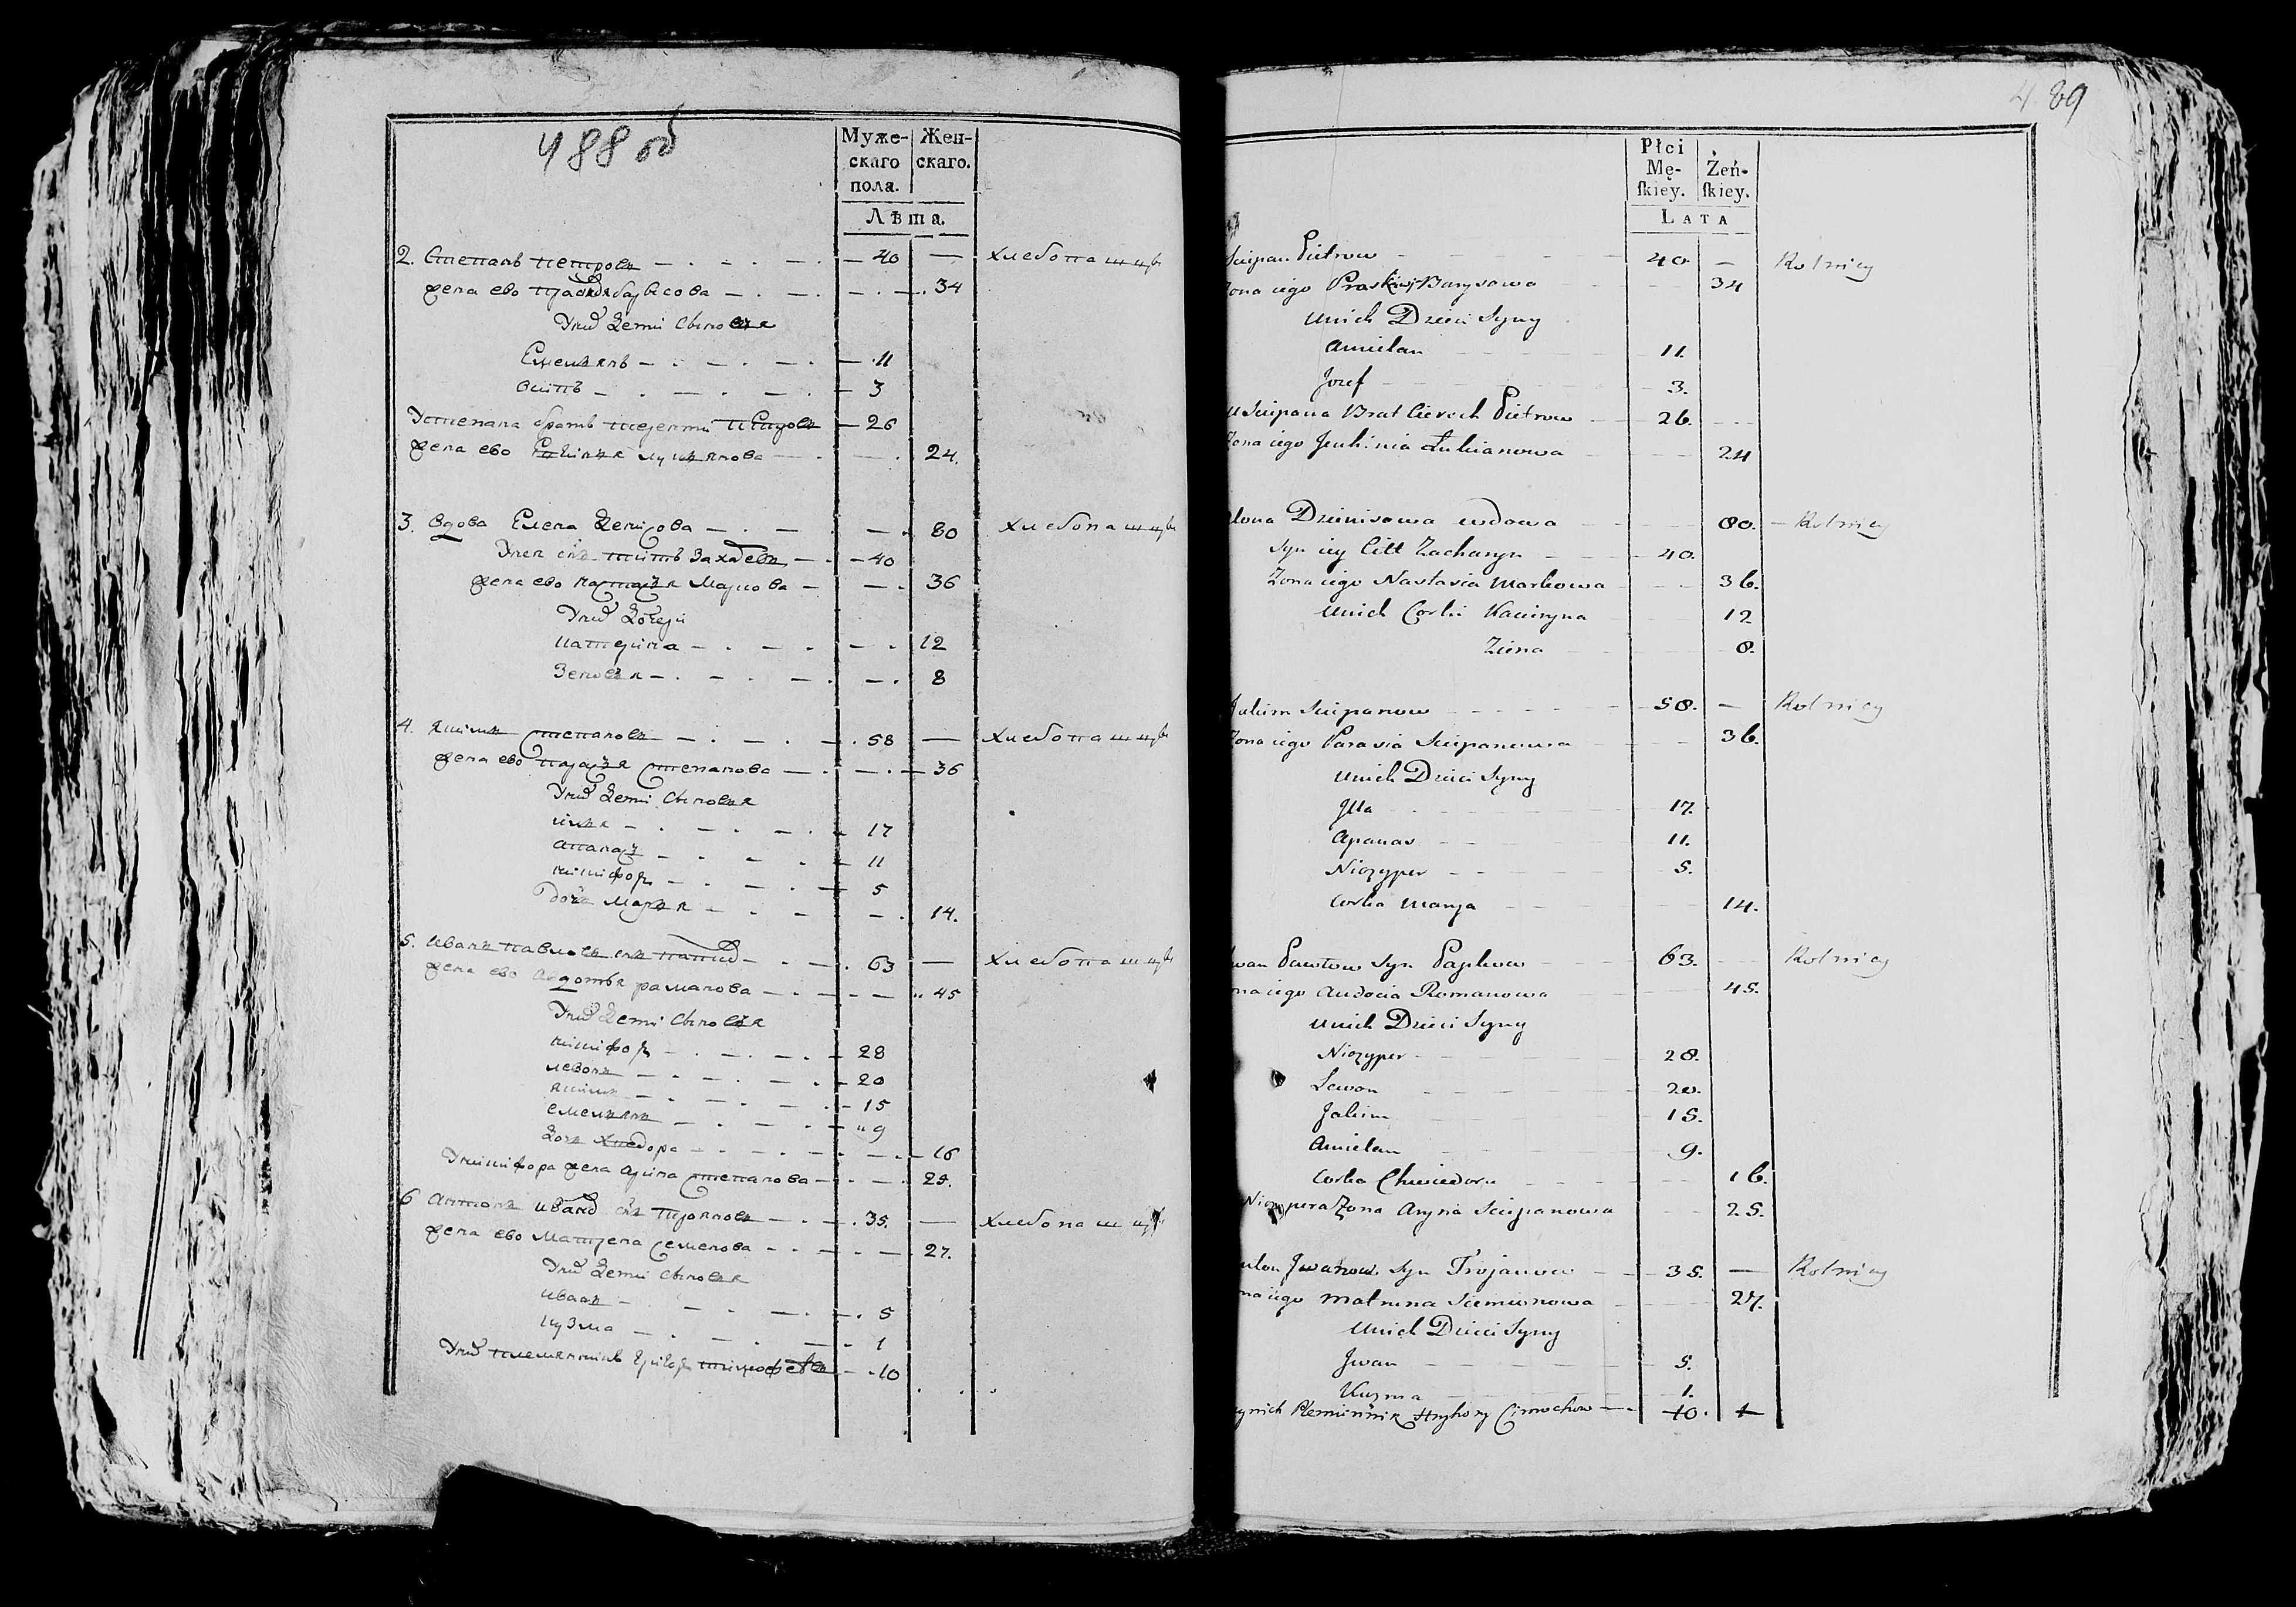 488 об
Муже-скаго пола. Жен-скаго.
Лѣта.
2. Степанъ петровъ 40 — хлебопашцы
жена ево прасковя барысова 34
У них дети сыновья
Емельянъ 11
Осипъ 3
У степана братъ терентй петровъ 26
жена ево лукьянова 24.
3. вдова Елена денисова 80 хлебопашцы
У нея снъ титъ Захаревъ 40
жена ево настасья маркова 36
У них дочери
катерина 12
Зеновья 8
4. якимъ степановъ 58 — хлебопашцы
жена ево парасья степанова 36
У них дети сыновья
илья 17
апанасъ 11
никифоръ 5
дочь марья 14.
5. иванъ павловъ снъ 63 — хлебопашцы
жена ево авдотья раманова 45
У них дети сыновья
никифоръ 28
левонъ 20
якимъ 15
емельянъ 9
дочь хведора 16
У никифора жена арина степанова 25.
6 антонъ иванов снъ трояновъ 35. — хлебопашцы
жена ево матрена семенова 27.
У них дети сыновья
иванъ 5
кузма 1
У них племянникъ григоръ тимофеевъ 10
489
Płci Mę-ſkiey. Żeń-ſkiey.
LATA
Sciepan Pietrow 40. — Rolnicy
Zona iego Praskiwj Barysowa 34
Unich Dzieci Syny
Amielan 11.
Jozef 3.
U Sciepana Brat Cierech Pietrow 26.
Zona iego Jeuhinia Łukianowa 24
lona Dzienisowa wdowa 80. — Rolnicy
Syn iey Citt Zacharyn 40.
Zona iego Nastasia Markowa 36.
Unich Corki Kaciryna 12
Zinna 8.
Jakim Sciepanow 58. — Rolnicy
Zona iego Parasia Sciepanowa 36.
Unich Dzieci Syny
Jlla 17.
Apanas 11.
Niczyper 5.
Corka Marya 14.
wan Pawłow Syn Papkow 63. Rolnicy
na iego Audocia Romanowa 45.
Unich Dzieci Syny
Niczyper 28.
Lawon 20.
Jakim 15.
Amielan 9.
Corka Chwiedora 16.
Niczypera Zona Aryna Sciepanowa 25.
nton Jwanow Syn Trojanow 35. — Rolnicy
na iego Matruna Siemionowa 27.
Unich Dzieci Syny
Jwan 5.
Kuzma 1.
ynich Plemiennik Hryhory Cimochow 10.